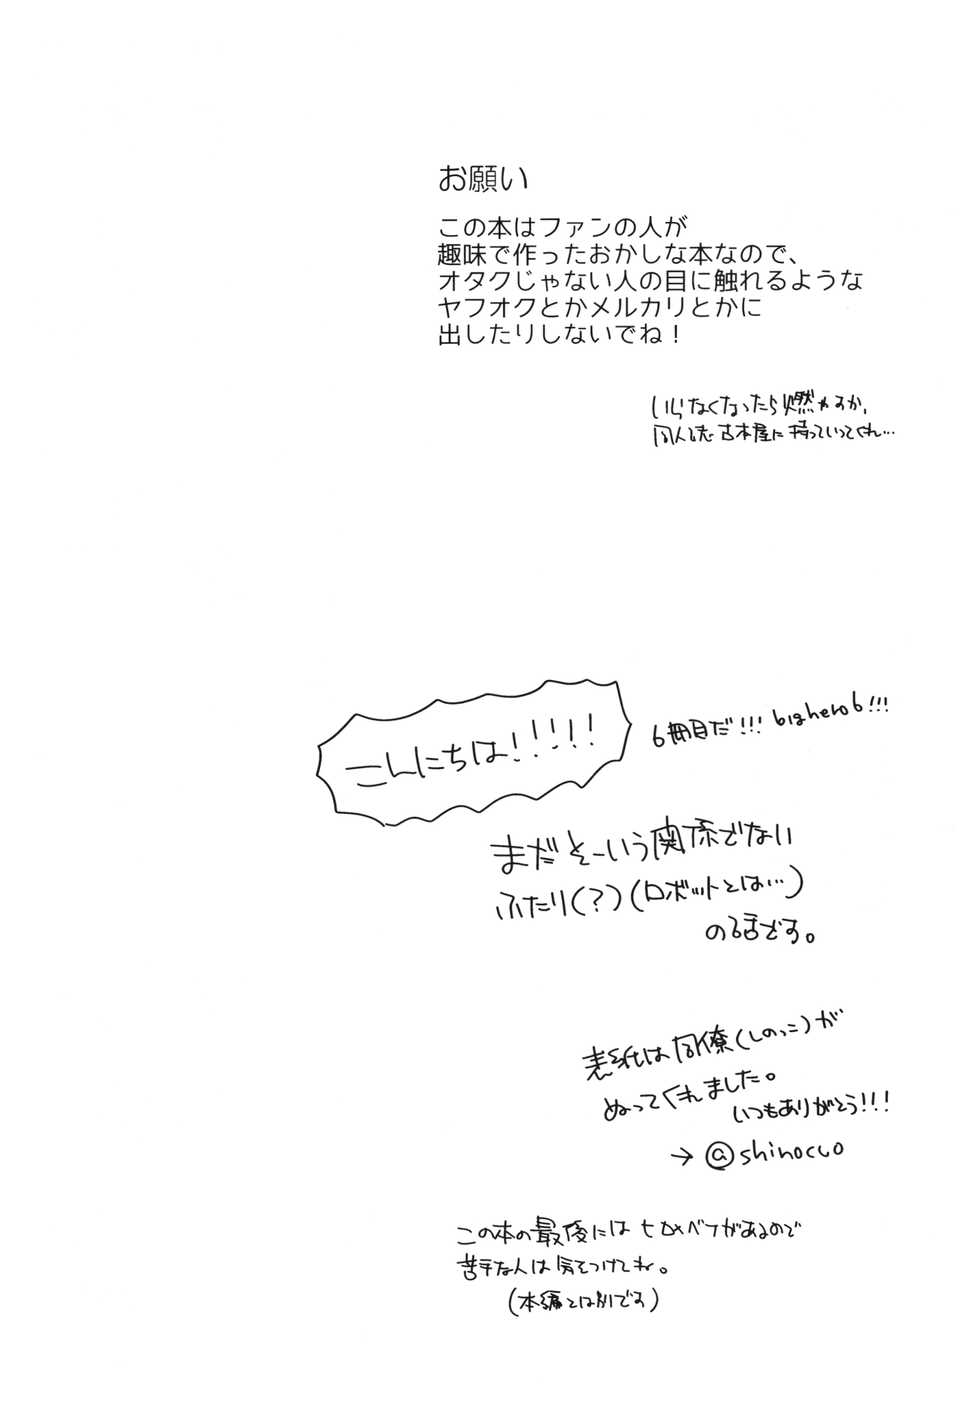 お願い
この本はファンの人が
趣味で作ったおかしな本なので、
オタクじゃない人の目に触れるような
ヤフオクとかメルカリとかに
出したりしないでね！
いらなくなったら燃やすか、
同人誌古本屋に持っていってくれ…
こんにちは!!!!!
6冊目だ!!! bighero6!!!
まだそーいう関係でない
ふたり(?)(ロボットとは…)
の話です。
表紙は同僚(しのっこ)が
ぬってくれました。
いつもありがとう!!!
→ @shinocco
この本の最後には ヒロ×ベフがあるので
苦手な人は気をつけてね。
(本編とは別です)